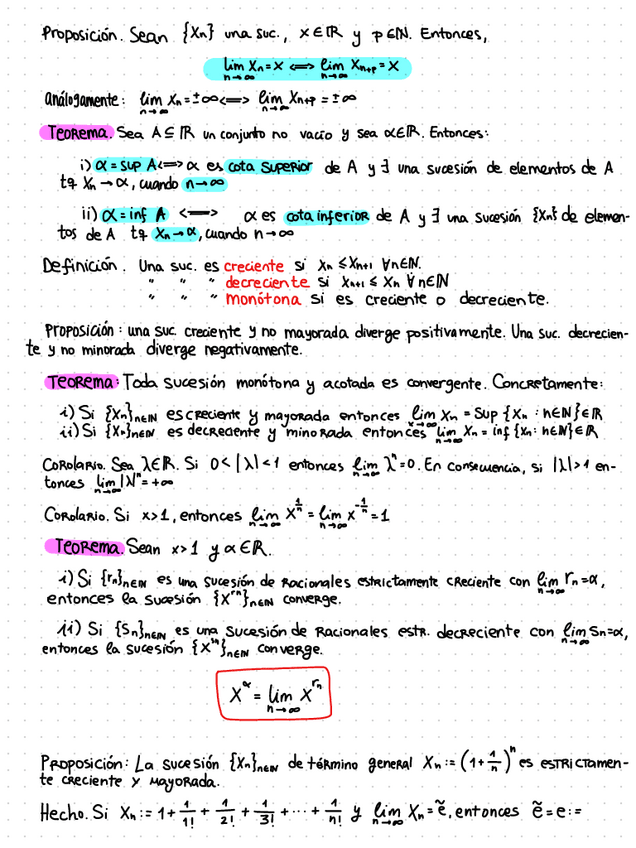 Proposición. Sean {Xn} una suc., x∈ℝ y p∈ℕ. Entonces,
lim Xn = x ⟺ lim Xn+p = x
n→∞ n→∞
análogamente: lim Xn = ±∞ ⟺ lim Xn+p = ±∞
n→∞ n→∞
Teorema. Sea A⊆ℝ un conjunto no vacío y sea α∈ℝ. Entonces:
i) α = sup A ⟺ α es cota superior de A y ∃ una sucesión de elementos de A
tq Xn→α, cuando n→∞
ii) α = inf A ⟺ α es cota inferior de A y ∃ una sucesión {Xn} de elemen-
tos de A tq Xn→α, cuando n→∞
Definición. Una suc. es creciente si Xn ≤ Xn+1 ∀n∈ℕ.
" " " decreciente si Xn+1 ≤ Xn ∀n∈ℕ
" " " monótona si es creciente o decreciente.
Proposición: una suc. creciente y no mayorada diverge positivamente. Una suc. decrecien-
te y no minorada diverge negativamente.
Teorema: Toda sucesión monótona y acotada es convergente. Concretamente:
i) Si {Xn}n∈ℕ es creciente y mayorada entonces lim Xn = Sup {Xn : n∈ℕ}∈ℝ
n→∞
ii) Si {Xn}n∈ℕ es decreciente y minorada entonces lim Xn = inf {Xn: n∈ℕ}∈ℝ
n→∞
Corolario. Sea λ∈ℝ. Si 0<|λ|<1 entonces lim λⁿ=0. En consecuencia, si |λ|>1 en-
n→∞
tonces lim|λ|ⁿ=+∞
n→∞
Corolario. Si x>1, entonces lim x^(1/n) = lim x^(-1/n) = 1
n→∞ n→∞
Teorema. Sean x>1 y α∈ℝ.
i) Si {rn}n∈ℕ es una sucesión de racionales estrictamente creciente con lim rn=α,
n→∞
entonces la sucesión {X^rn}n∈ℕ converge.
ii) Si {Sn}n∈ℕ es una sucesión de racionales estr. decreciente con lim Sn=α,
n→∞
entonces la sucesión {X^sn}n∈ℕ converge.
X^α = lim X^rn
n→∞
Proposición: La sucesión {Xn}n∈ℕ de término general Xn := (1+1/n)ⁿ es estrictamen-
te creciente y mayorada.
Hecho. Si Xn := 1+1/1!+1/2!+1/3!+···+1/n! y lim Xn = ẽ, entonces ẽ=e:=
n→∞